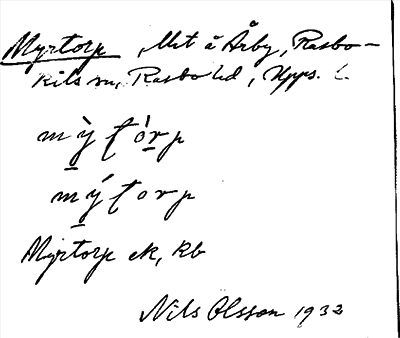 Myrtorp Utt å Årby, Rasbo-
kils sn, Rasbo hd, Upps. L.
m ỳ ƭ ó r p
m ý ƭ o r p
Myrtorp ek, kb
Nils Olsson 1932